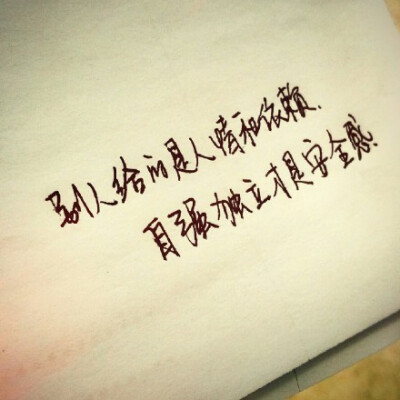 别人给的是人情和依赖.
自强独立才是安全感